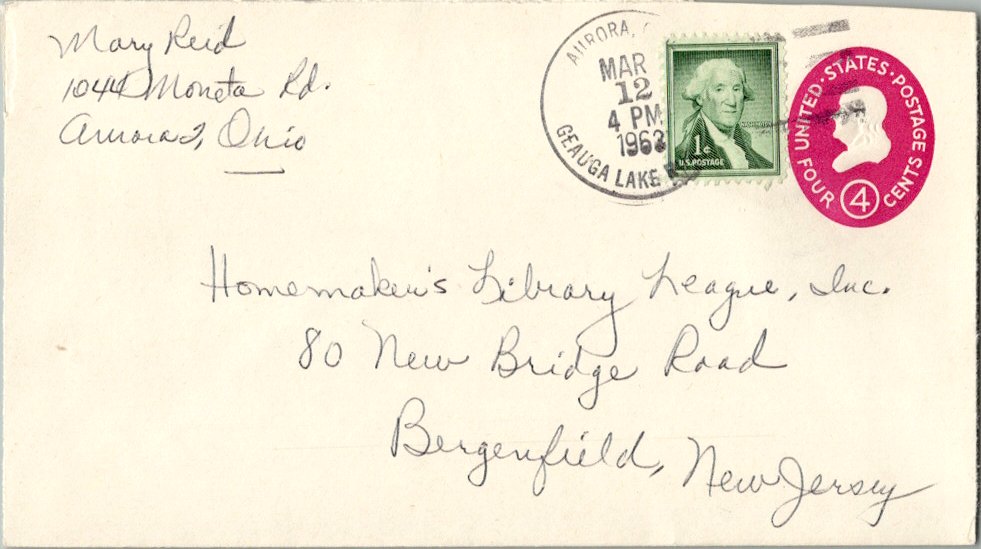 Mary Reid
1044 Moneta Rd.
Aurora, Ohio
AURORA, O
MAR
12
4 PM
1963
GEAUGA LAKE
1¢
U.S. POSTAGE
UNITED · STATES · POSTAGE
FOUR 4 CENTS
Homemaker's Library League, Inc.
80 New Bridge Road
Bergenfield, New Jersey